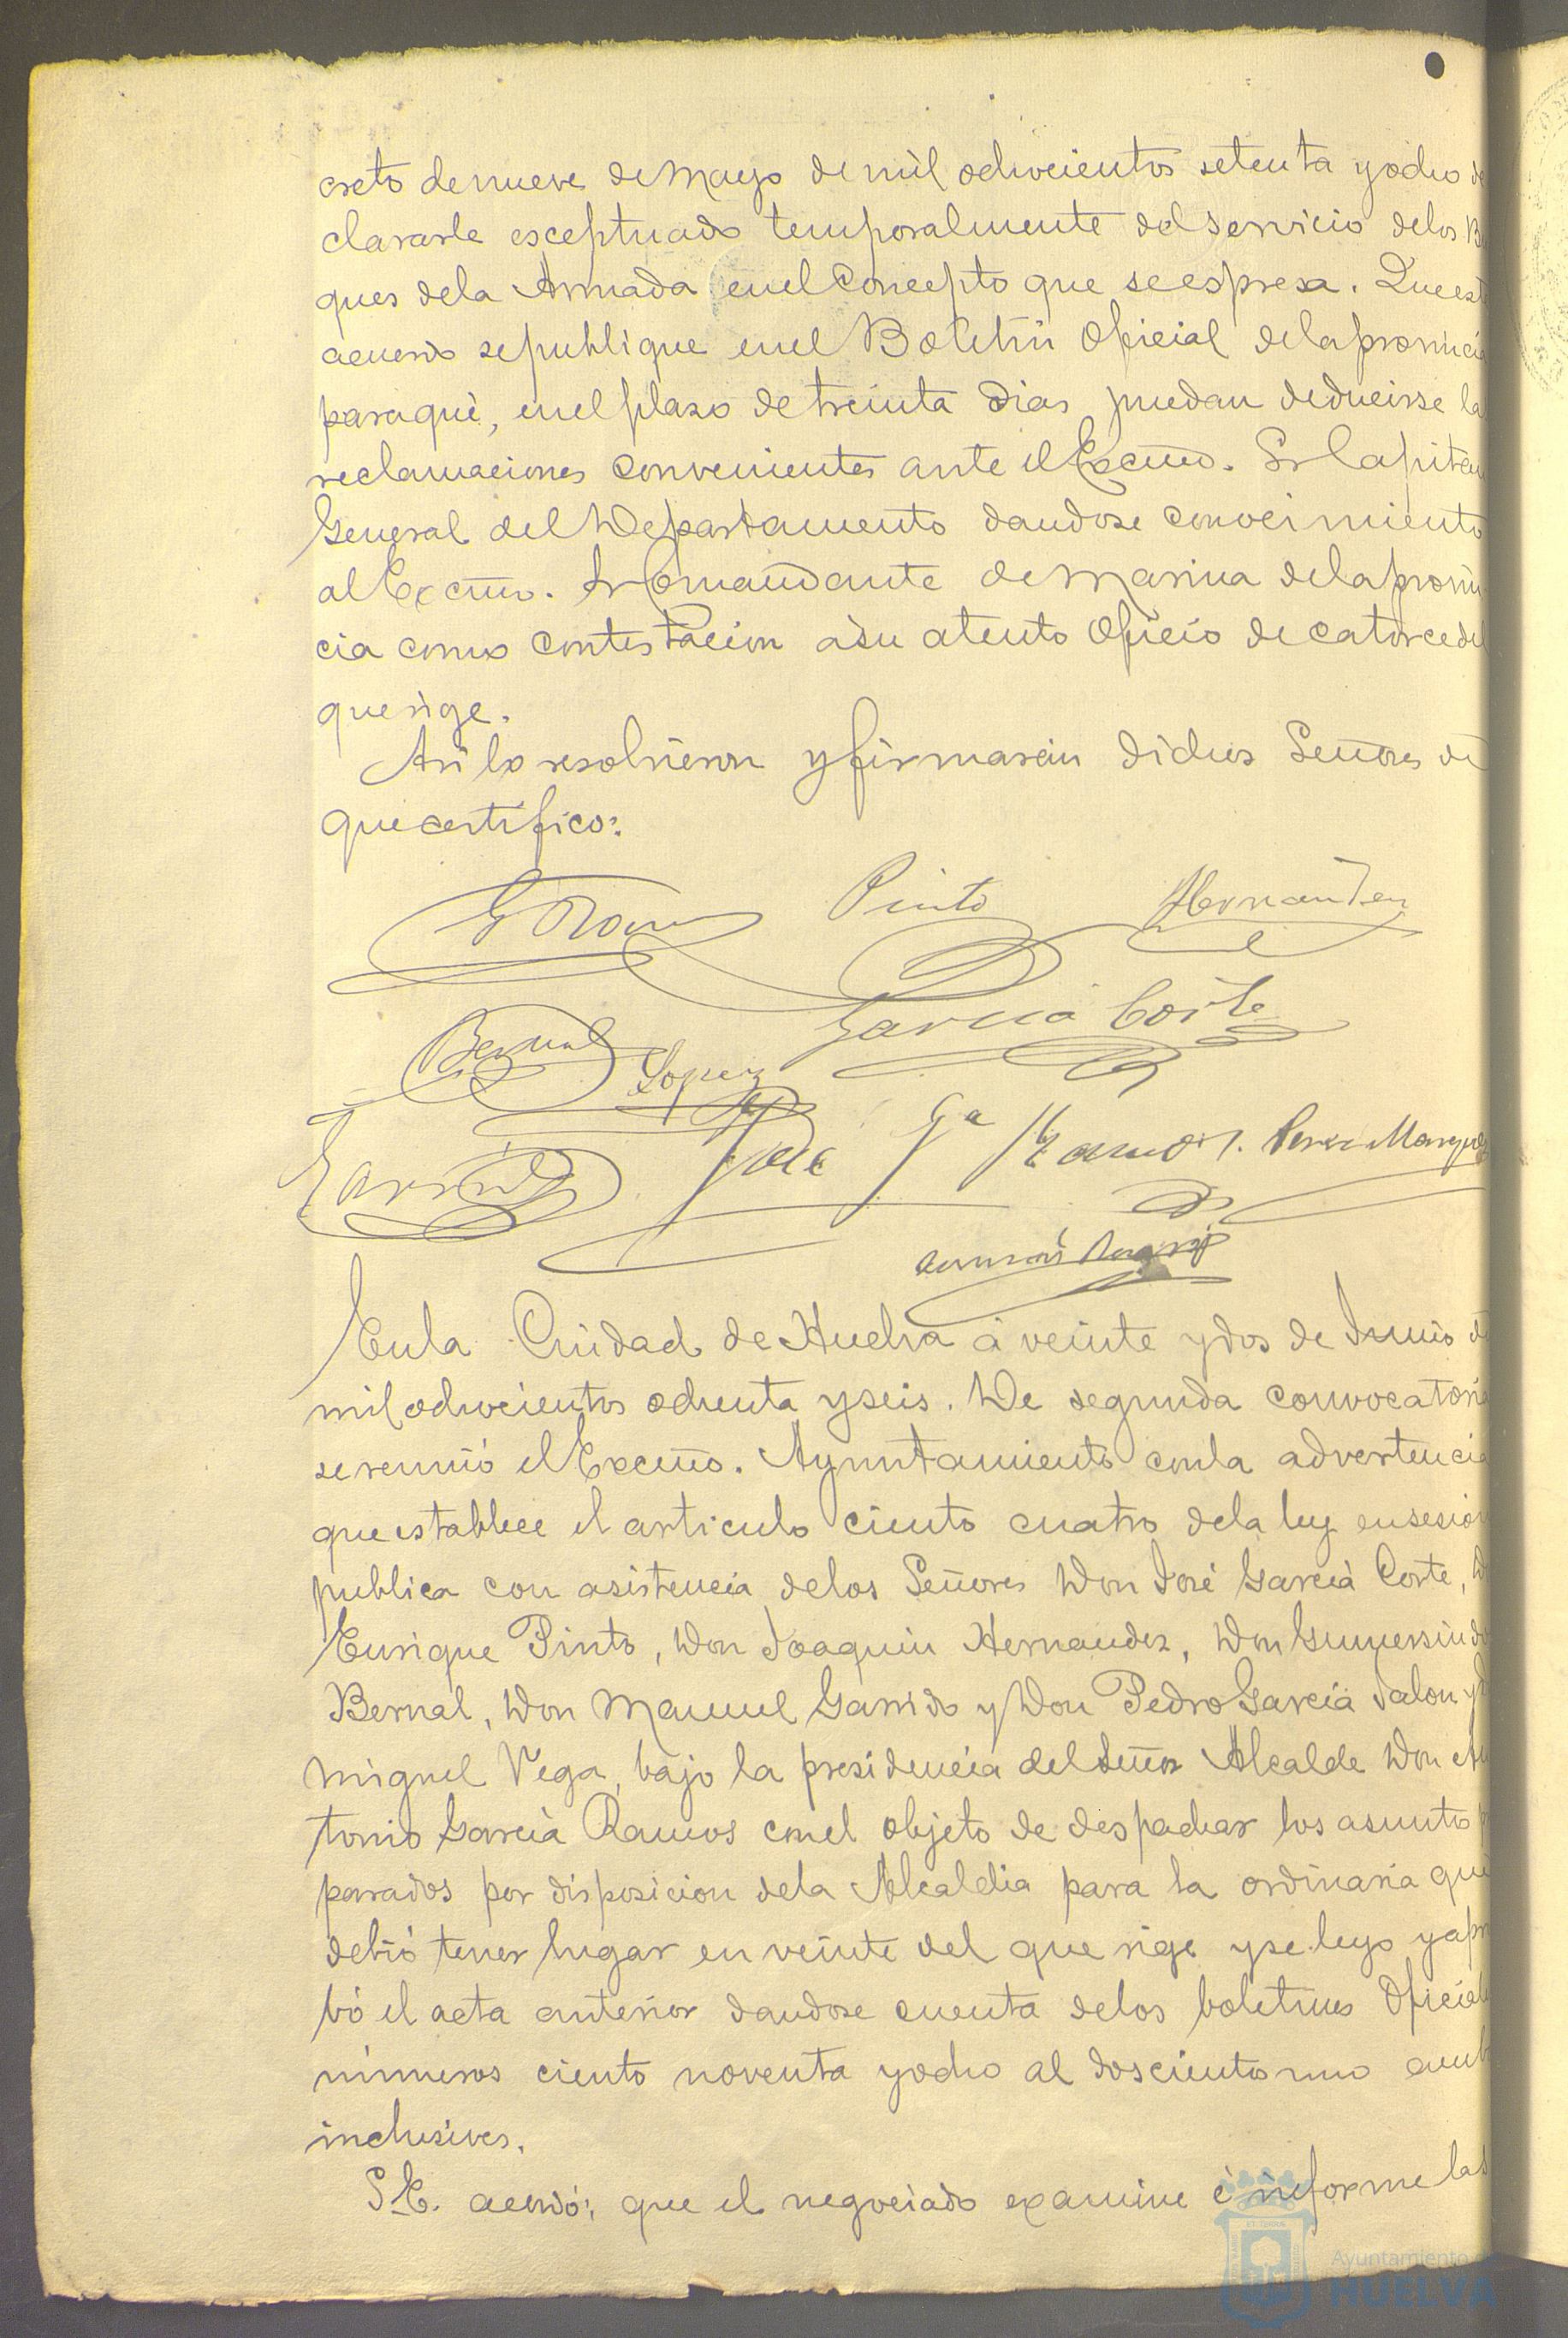 creto de nueve de Mayo de mil ochocientos setenta y ocho de
clararle esceptuado temporalmente del servicio de los Bu
ques de la Armada en el concepto que se espresa. Que este
acuerdo se publique en el Boletin Oficial de la provincia
para què, en el plazo de treinta dias puedan deducirse la
reclamaciones convenientes ante el Excmo. Sr Capitan
General del Departamento dandose conocimiento
al Excmo. Sr Comandante de Marina de la provin
cia como contestacion à su atento Oficio de catorce del
que rige.
Asi lo resolvieron y firmaràn dichos Señores de
que certifico:
Pinto Hernandez
Bernal Lopez Garcia Corte
Garrido José Ga Ramos J. Perez Marquez
En la Ciudad de Huelva à veinte y dos de Junio de
mil ochocientos ochenta y seis. De segunda convocatoria
se reunió el Excmo. Ayuntamiento con la advertencia
que establece el articulo ciento cuatro de la ley en sesion
publica con asistencia de los Señores Don José Garcia Corte, D
Enrique Pinto, Don Joaquin Hernandez, Don Gumersindo
Bernal, Don Manuel Garrido y Don Pedro Garcia Jalon y
Miguel Vega, bajo la presidencia del Señor Alcalde Don An
tonio Garcià Ramos con el objeto de despachar los asuntos p
parados por disposicion de la Alcaldia para la ordinaria que
debió tener lugar en veinte del que rige y se leyo y apro
bó el acta anterior dandose cuenta de los boletines Oficiales
nùmeros ciento noventa y ocho al doscientos uno amb
inclusives.
S.E. acordó: que el negociado examine è informe las
Ayuntamiento
HUELVA